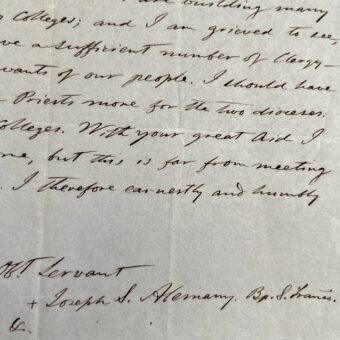 building many
Colleges; and I am grieved to see,
a sufficient number of Clergy-
wants of our people. I should have
Priests more for the two dioceses:
Colleges. With your great aid I
but this is far from meeting
I therefore earnestly and humbly
Obt. Servant
+ Joseph S. Alemany, Bp. S. Franc.
&.